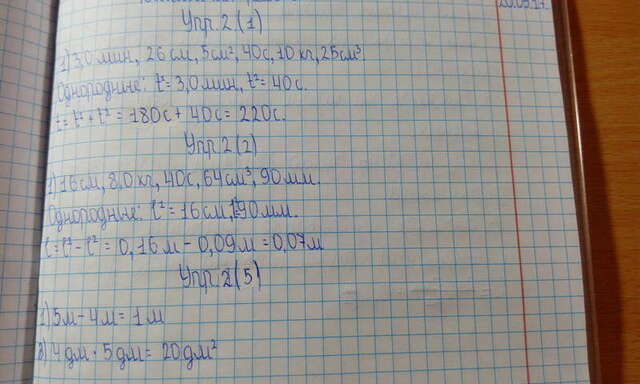 20.09.17.
Упр. 2 (1)
1) 3,0 мин, 26 см, 5 см², 40 с, 10 кг, 25 см³.
Однородные: t¹ = 3,0 мин, t² = 40 с.
t = t¹ + t² = 180 с + 40 с = 220 с.
Упр. 2 (2)
1) 16 см, 8,0 кг, 40 с, 64 см³, 90 мм.
Однородные: ℓ² = 16 см, ℓ¹ 90 мм.
ℓ = ℓ¹ - ℓ² = 0,16 м - 0,09 м = 0,07 м
Упр. 2 (5)
1) 5 м - 4 м = 1 м
2) 4 дм · 5 дм = 20 дм²